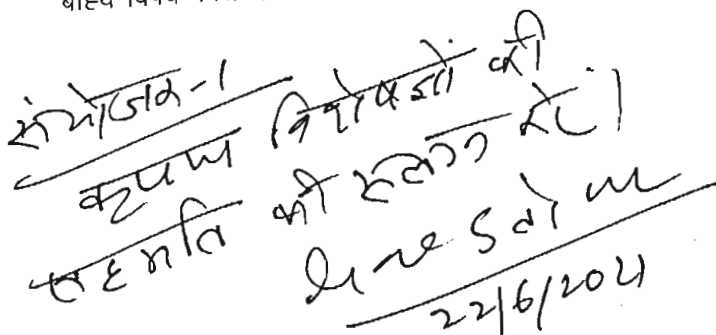 बाह्य विषय
संयोजक-1
कृपया विशेषज्ञों की
सहमति भी संलग्न करें।
22/6/2021